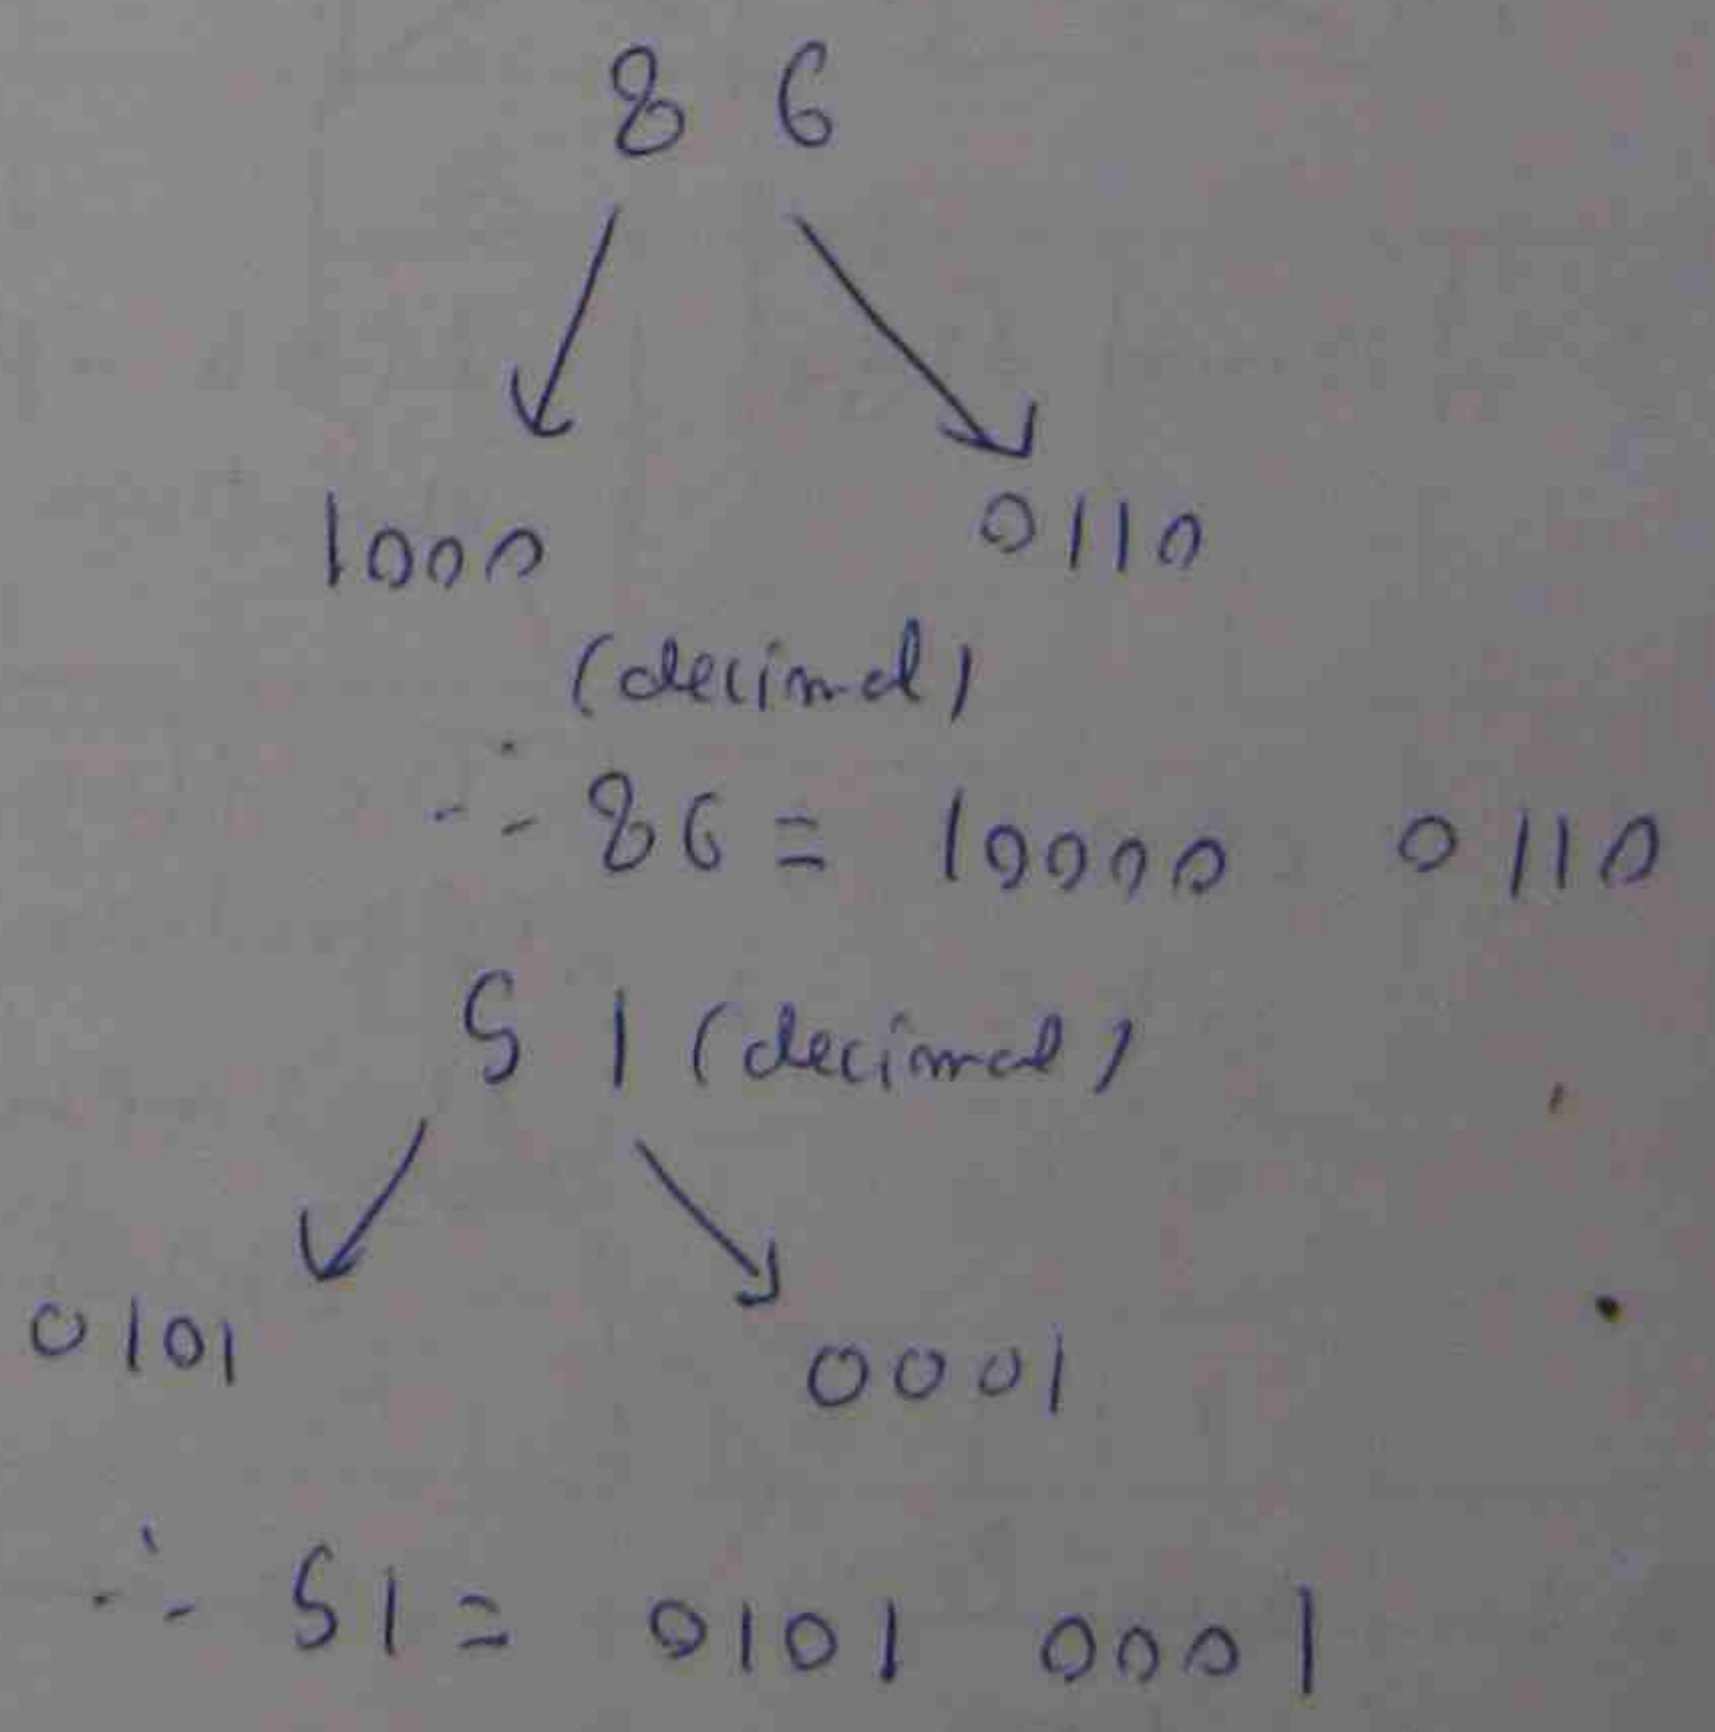 8 6
1000 0110
(decimal)
∴ 86 = 10000 0110
5 1 (decimal)
0101 0001
∴ 51 = 0101 0001